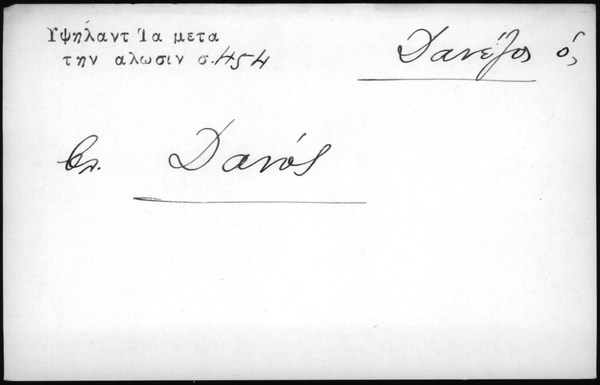 Υψήλαντ Ία μετα
την αλωσιν σ.454
Δανέζος ὁ,
βλ. Δανός